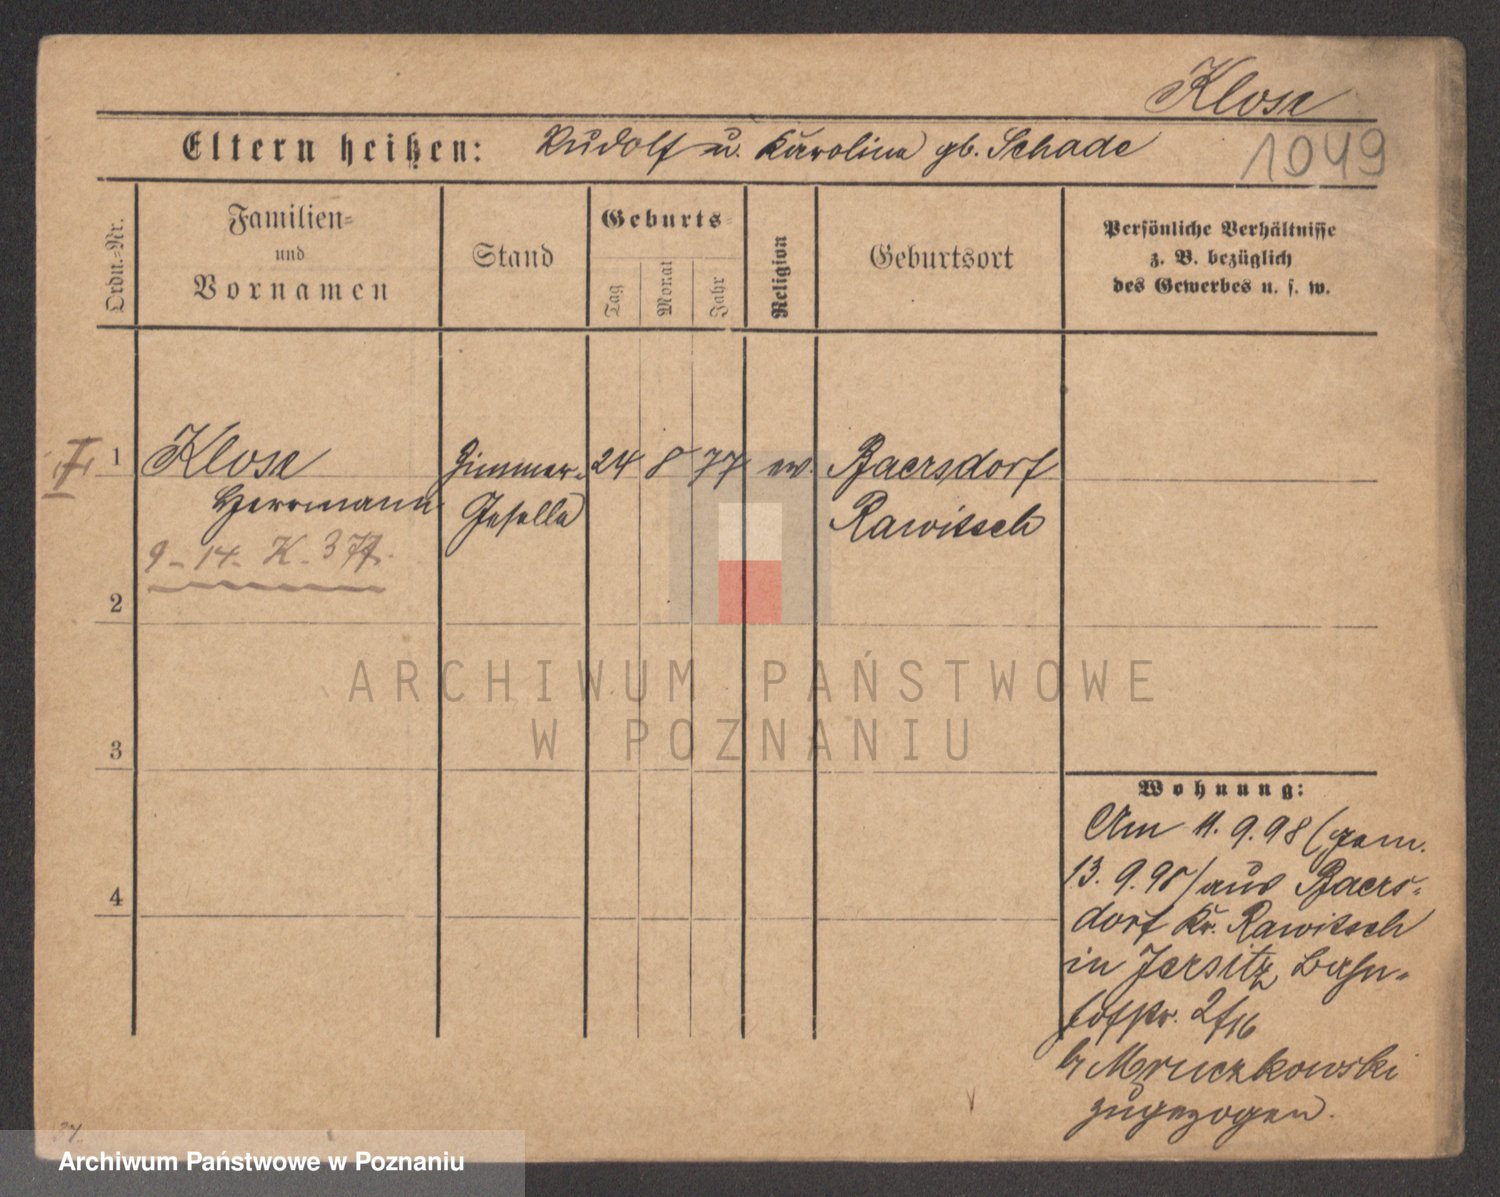 Klose
1049
Eltern heißen: Rudolf u. Karolina gb. Schade
Ordn.-Nr.
Familien-
und
Vornamen
Stand
Geburts-
Tag
Monat
Jahr
Religion
Geburtsort
Persönliche Verhältnisse
z. B. bezüglich
des Gewerbes u. s. w.
1 Klose Zimmer- 24 8 77 ev. Baersdorf
Herrmann Geselle Rawitsch
9-14. K. 377.
2
3
4
ARCHIWUM PAŃSTWOWE
W POZNANIU
Wohnung:
Am 11. 9. 98 (gem.
13. 9. 98) aus Baers-
dorf Kr. Rawitsch
in Jersitz, Bahn-
hofstr. 2/16
b. Mruczkowski
zugezogen.
Archiwum Państwowe w Poznaniu